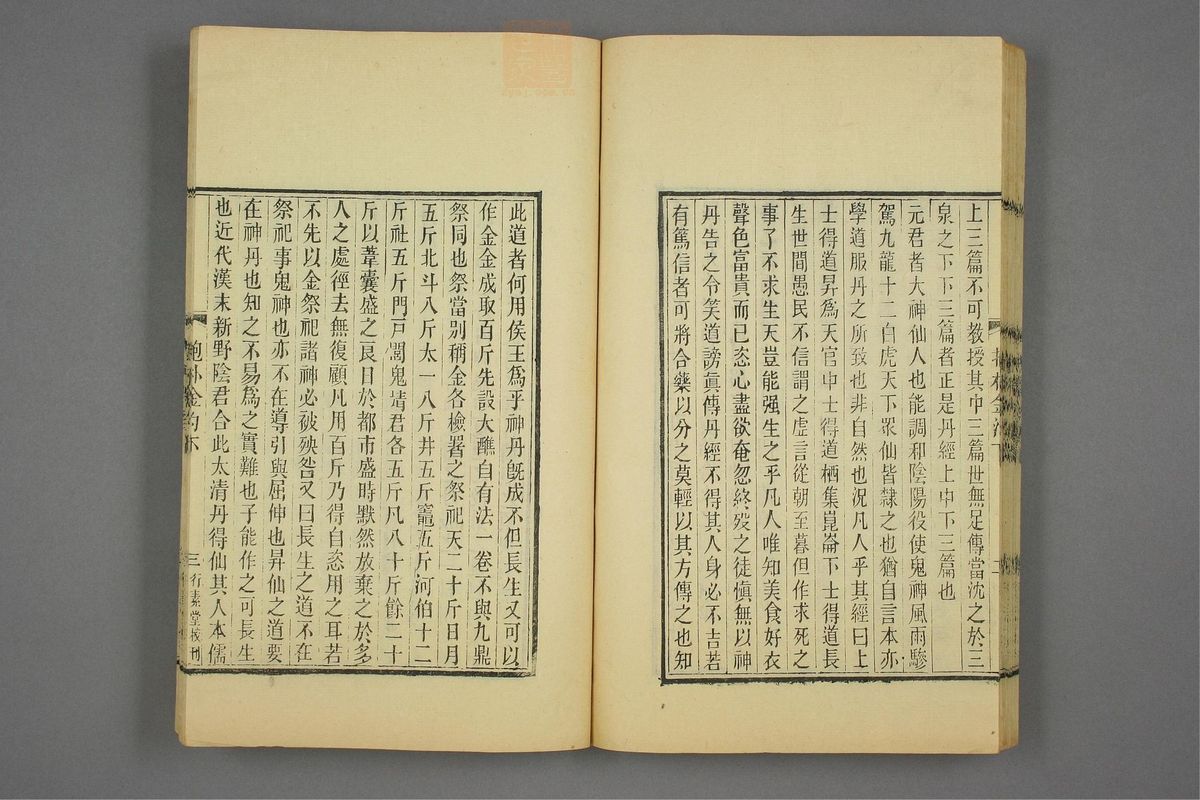 上三篇不可教授其中三篇世無足傳當沈之於三
泉之下下三篇者正是丹經上中下三篇也
元君者大神仙人也能調和陰陽役使鬼神風雨驂
駕九龍十二白虎天下眾仙皆隸之也猶自言本亦
學道服丹之所致也非自然也況凡人乎其經曰上
士得道昇為天官中士得道栖集崑崙下士得道長
生世間愚民不信謂之虛言從朝至暮但作求死之
事了不求生天豈能强生之乎凡人唯知美食好衣
聲色富貴而已恣心盡欲奄忽終歿之徒慎無以神
丹告之令笑道謗真傳丹經不得其人身必不吉若
有篤信者可將合藥以分之莫輕以其方傳之也知
此道者何用侯王為乎神丹旣成不但長生又可以
作金金成取百斤先設大醮自有法一卷不與九鼎
祭同也祭當別稱金各檢署之祭祀天二十斤日月
五斤北斗八斤太一八斤井五斤竈五斤河伯十二
斤社五斤門戸閭鬼清君各五斤凡八十斤餘二十
斤以葦囊盛之良日於都市盛時默然放棄之於多
人之處徑去無復顧凡用百斤乃得自恣用之耳若
不先以金祭祀諸神必被殃咎又曰長生之道不在
祭祀事鬼神也亦不在導引與屈伸也昇仙之道要
在神丹也知之不易為之實難也子能作之可長生
也近代漢末新野陰君合此太清丹得仙其人本儒
三 行素堂校刊